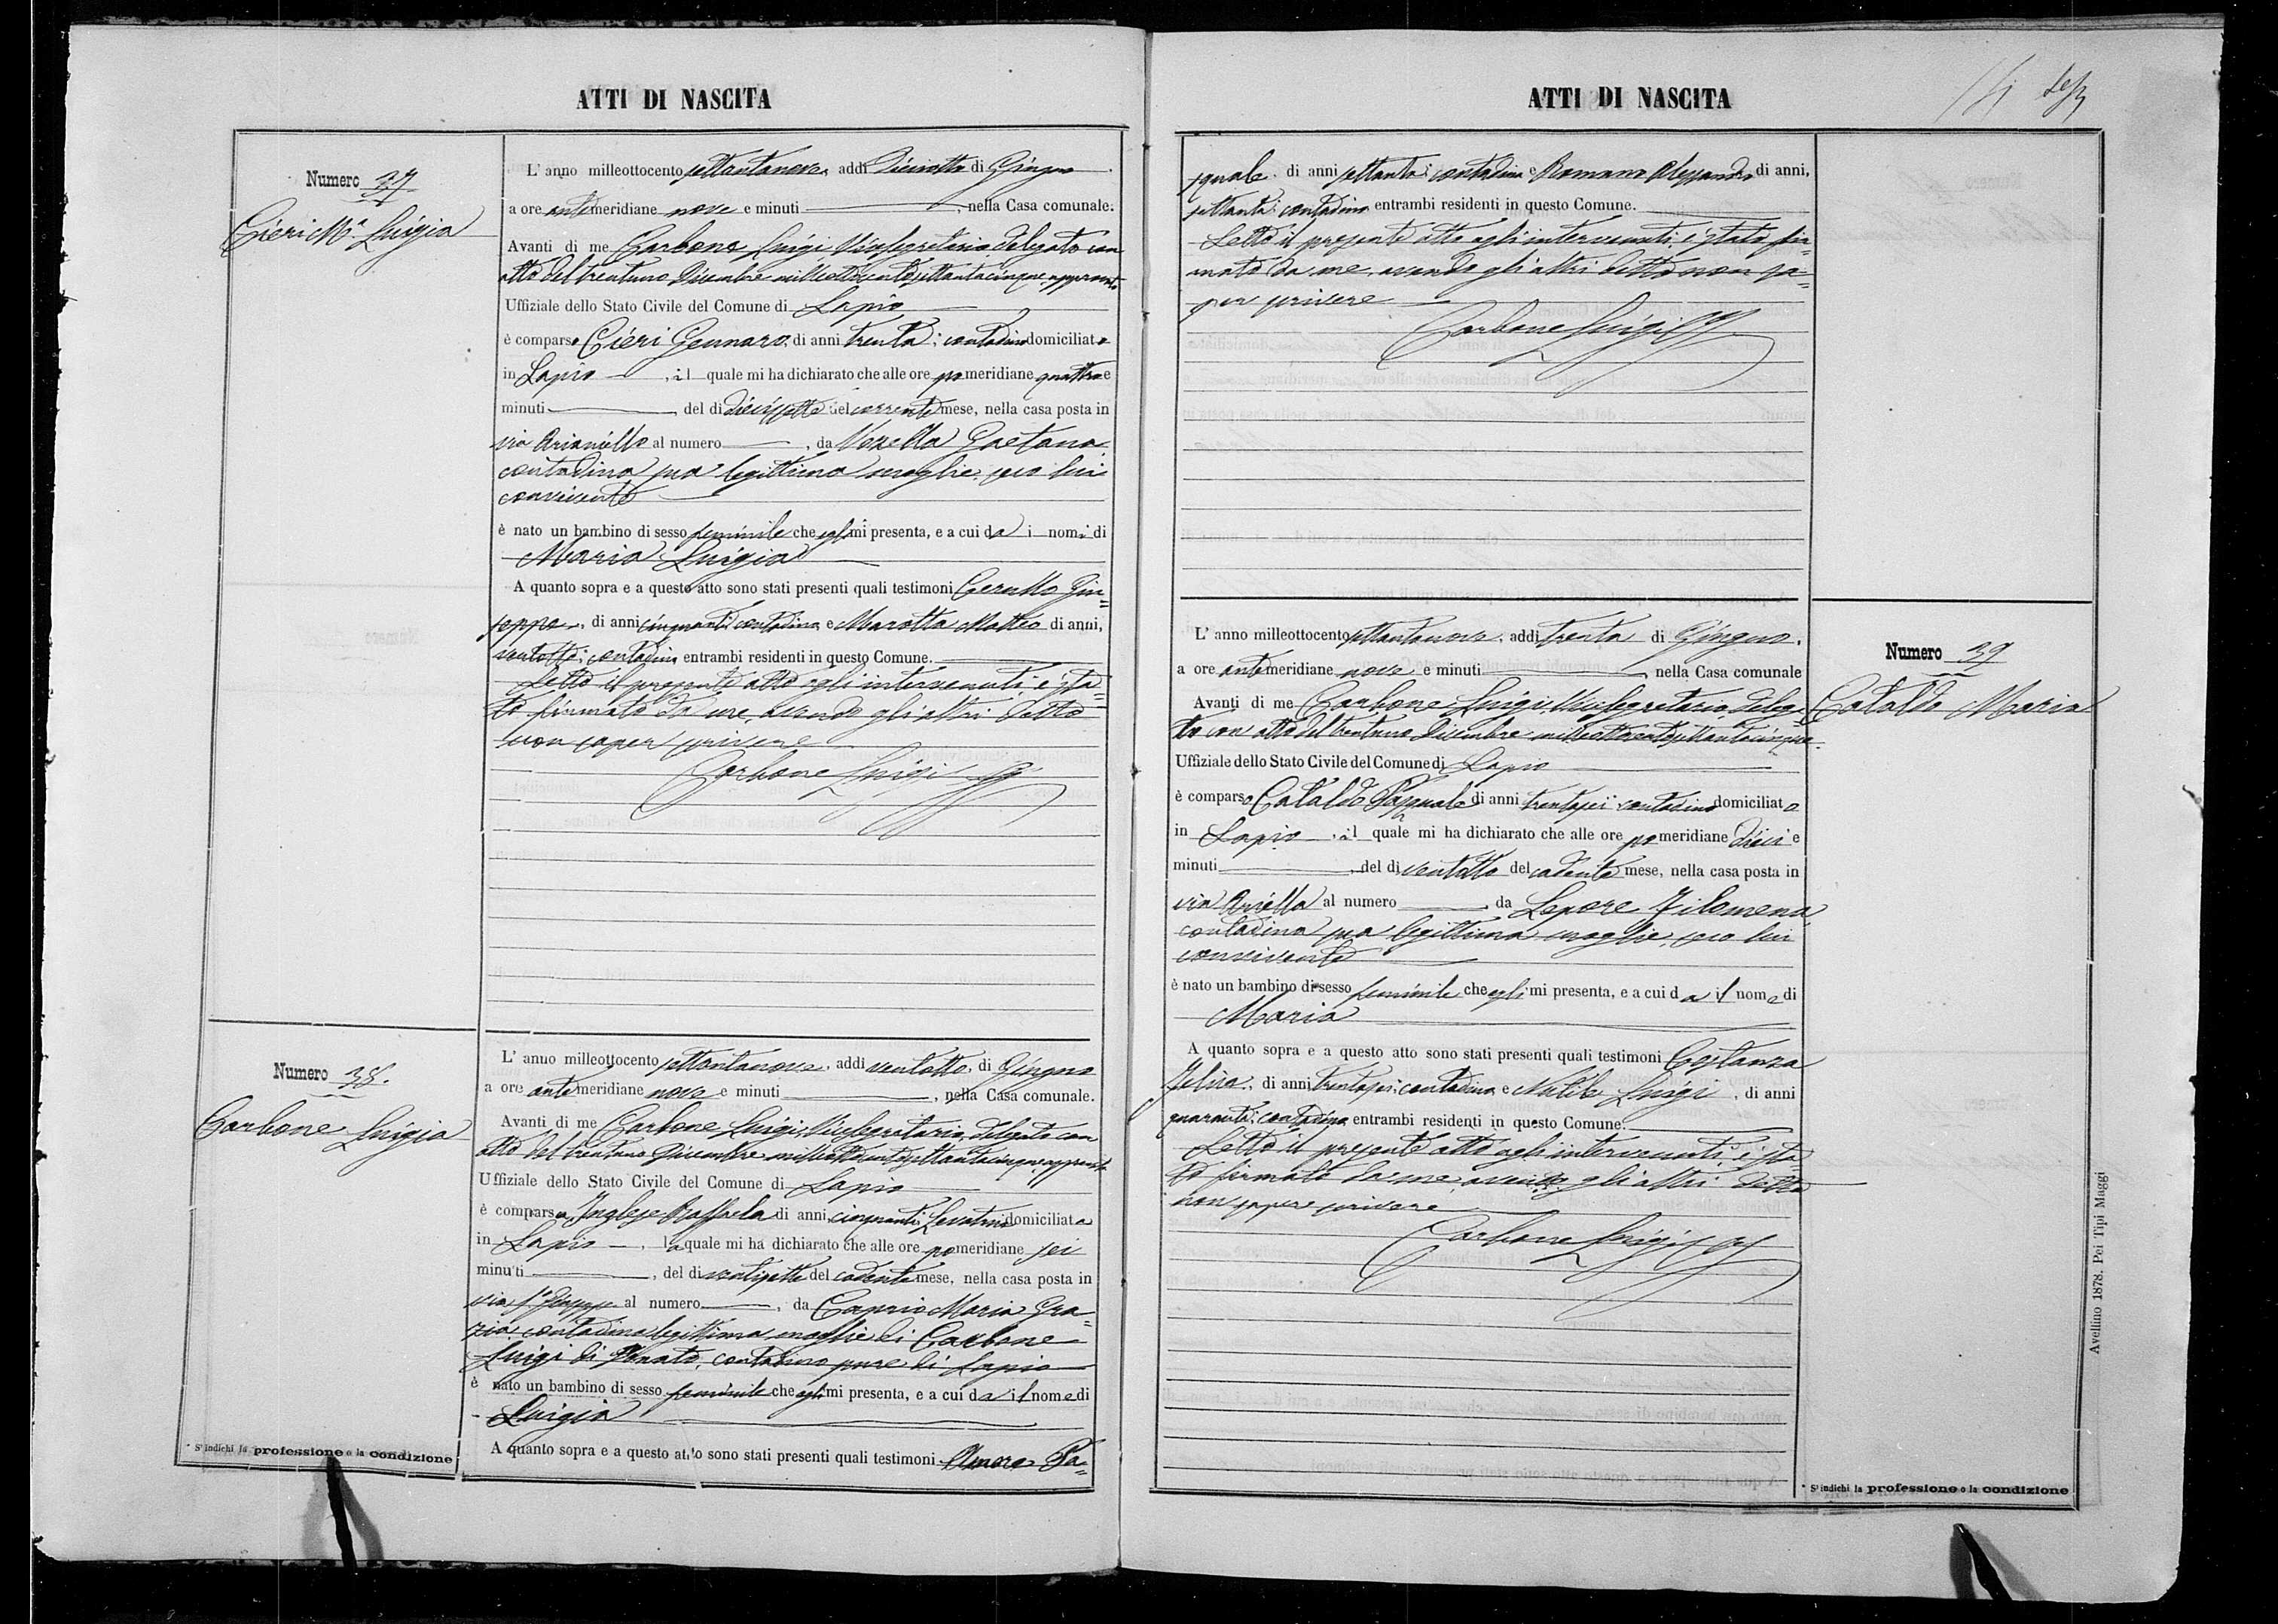 ATTI DI NASCITA
Numero 37
Cieri Mª Luigia
L' anno milleottocento settantanove, addi Dieciotto di Giugno
a ore antemeridiane nove e minuti , nella Casa comunale.
Avanti di me Carbone Luigi Vicesegretario delegato con
atto del trentuno Dicembre milleottocentosettantacinque approvato
Uffiziale dello Stato Civile del Comune di Lapio
è comparso Cieri Gennaro, di anni trenta; contadino domiciliato
in Lapio , il quale mi ha dichiarato che alle ore pomeridiane quattro e
minuti , del dì diecisette del corrente mese, nella casa posta in
via Arianiello al numero , da Vozella Gaetana
contadina sua legittima moglie, seco lui
convivente
è nato un bambino di sesso feminile che egli mi presenta, e a cui da i nomi di
Maria Luigia
A quanto sopra e a questo atto sono stati presenti quali testimoni Cerullo Giu=
seppe, di anni cinquanta contadino e Marotta Matteo di anni,
ventotto; contadino entrambi residenti in questo Comune.
Letto il presente atto agli intervenuti è sta=
to firmato da me, avendo gli altri detto
non saper scrivere
Carbone Luigi
Numero 38.
Carbone Luigia
L' anno milleottocento settantanove, addi ventotto, di Giugno
a ore antemeridiane nove e minuti , nella Casa comunale.
Avanti di me Carbone Luigi, Vicesegretario, delegato con
atto del trentuno Dicembre milleottocentosettantacinque approvato
Uffiziale dello Stato Civile del Comune di Lapio
è comparsa Inglese Raffaela di anni cinquanta; Levatrice domiciliata
in Lapio , la quale mi ha dichiarato che alle ore pomeridiane sei
minuti , del dì ventisette del cadente mese, nella casa posta in
via S. Giuseppe al numero , da Caprio Maria Gra=
zia contadina legittima moglie di Carbone
Luigi di Donato, contadino pure di Lapio
è nato un bambino di sesso feminile che egli mi presenta, e a cui da il nome di
Luigia
A quanto sopra e a questo atto sono stati presenti quali testimoni Amore Pa=
* S'indichi la professione o la condizione
ATTI DI NASCITA
squale, di anni settanta; contadino e Romano Alessandro di anni,
settanta; contadino entrambi residenti in questo Comune.
Letto il presente atto agli intervenuti, è stato fir=
mato da me, avendo gli altri detto non sa=
per scrivere
Carbone Luigi
Numero 39
Cataldo Maria
L' anno milleottocento settantanove, addi trenta di Giugno.
a ore antemeridiane nove e minuti , nella Casa comunale
Avanti di me Carbone Luigi Vicesegretario, delega=
to con atto del trentuno Dicembre milleottocentosettantacinque
Uffiziale dello Stato Civile del Comune di Lapio
è comparso Cataldo Pasquale di anni trentasei contadino domiciliato
in Lapio , il quale mi ha dichiarato che alle ore pomeridiane dieci e
minuti , del dì ventotto del cadente mese, nella casa posta in
via Ariella al numero da Lepore Filomena
contadina sua legittima moglie, seco lui
convivente
è nato un bambino di sesso feminile che egli mi presenta, e a cui da il nome di
Maria
A quanto sopra e a questo atto sono stati presenti quali testimoni Costanza
Felice, di anni trentasei; contadino e Nutile Luigi , di anni
quaranta; contadino entrambi residenti in questo Comune.
Letto il presente atto agli intervenuti, è sta=
to firmato da me, avendo gli altri detto
non sapere scrivere
Carbone Luigi
Avellino 1878. Pei Tipi Maggi
* S'indichi la professione o la condizione